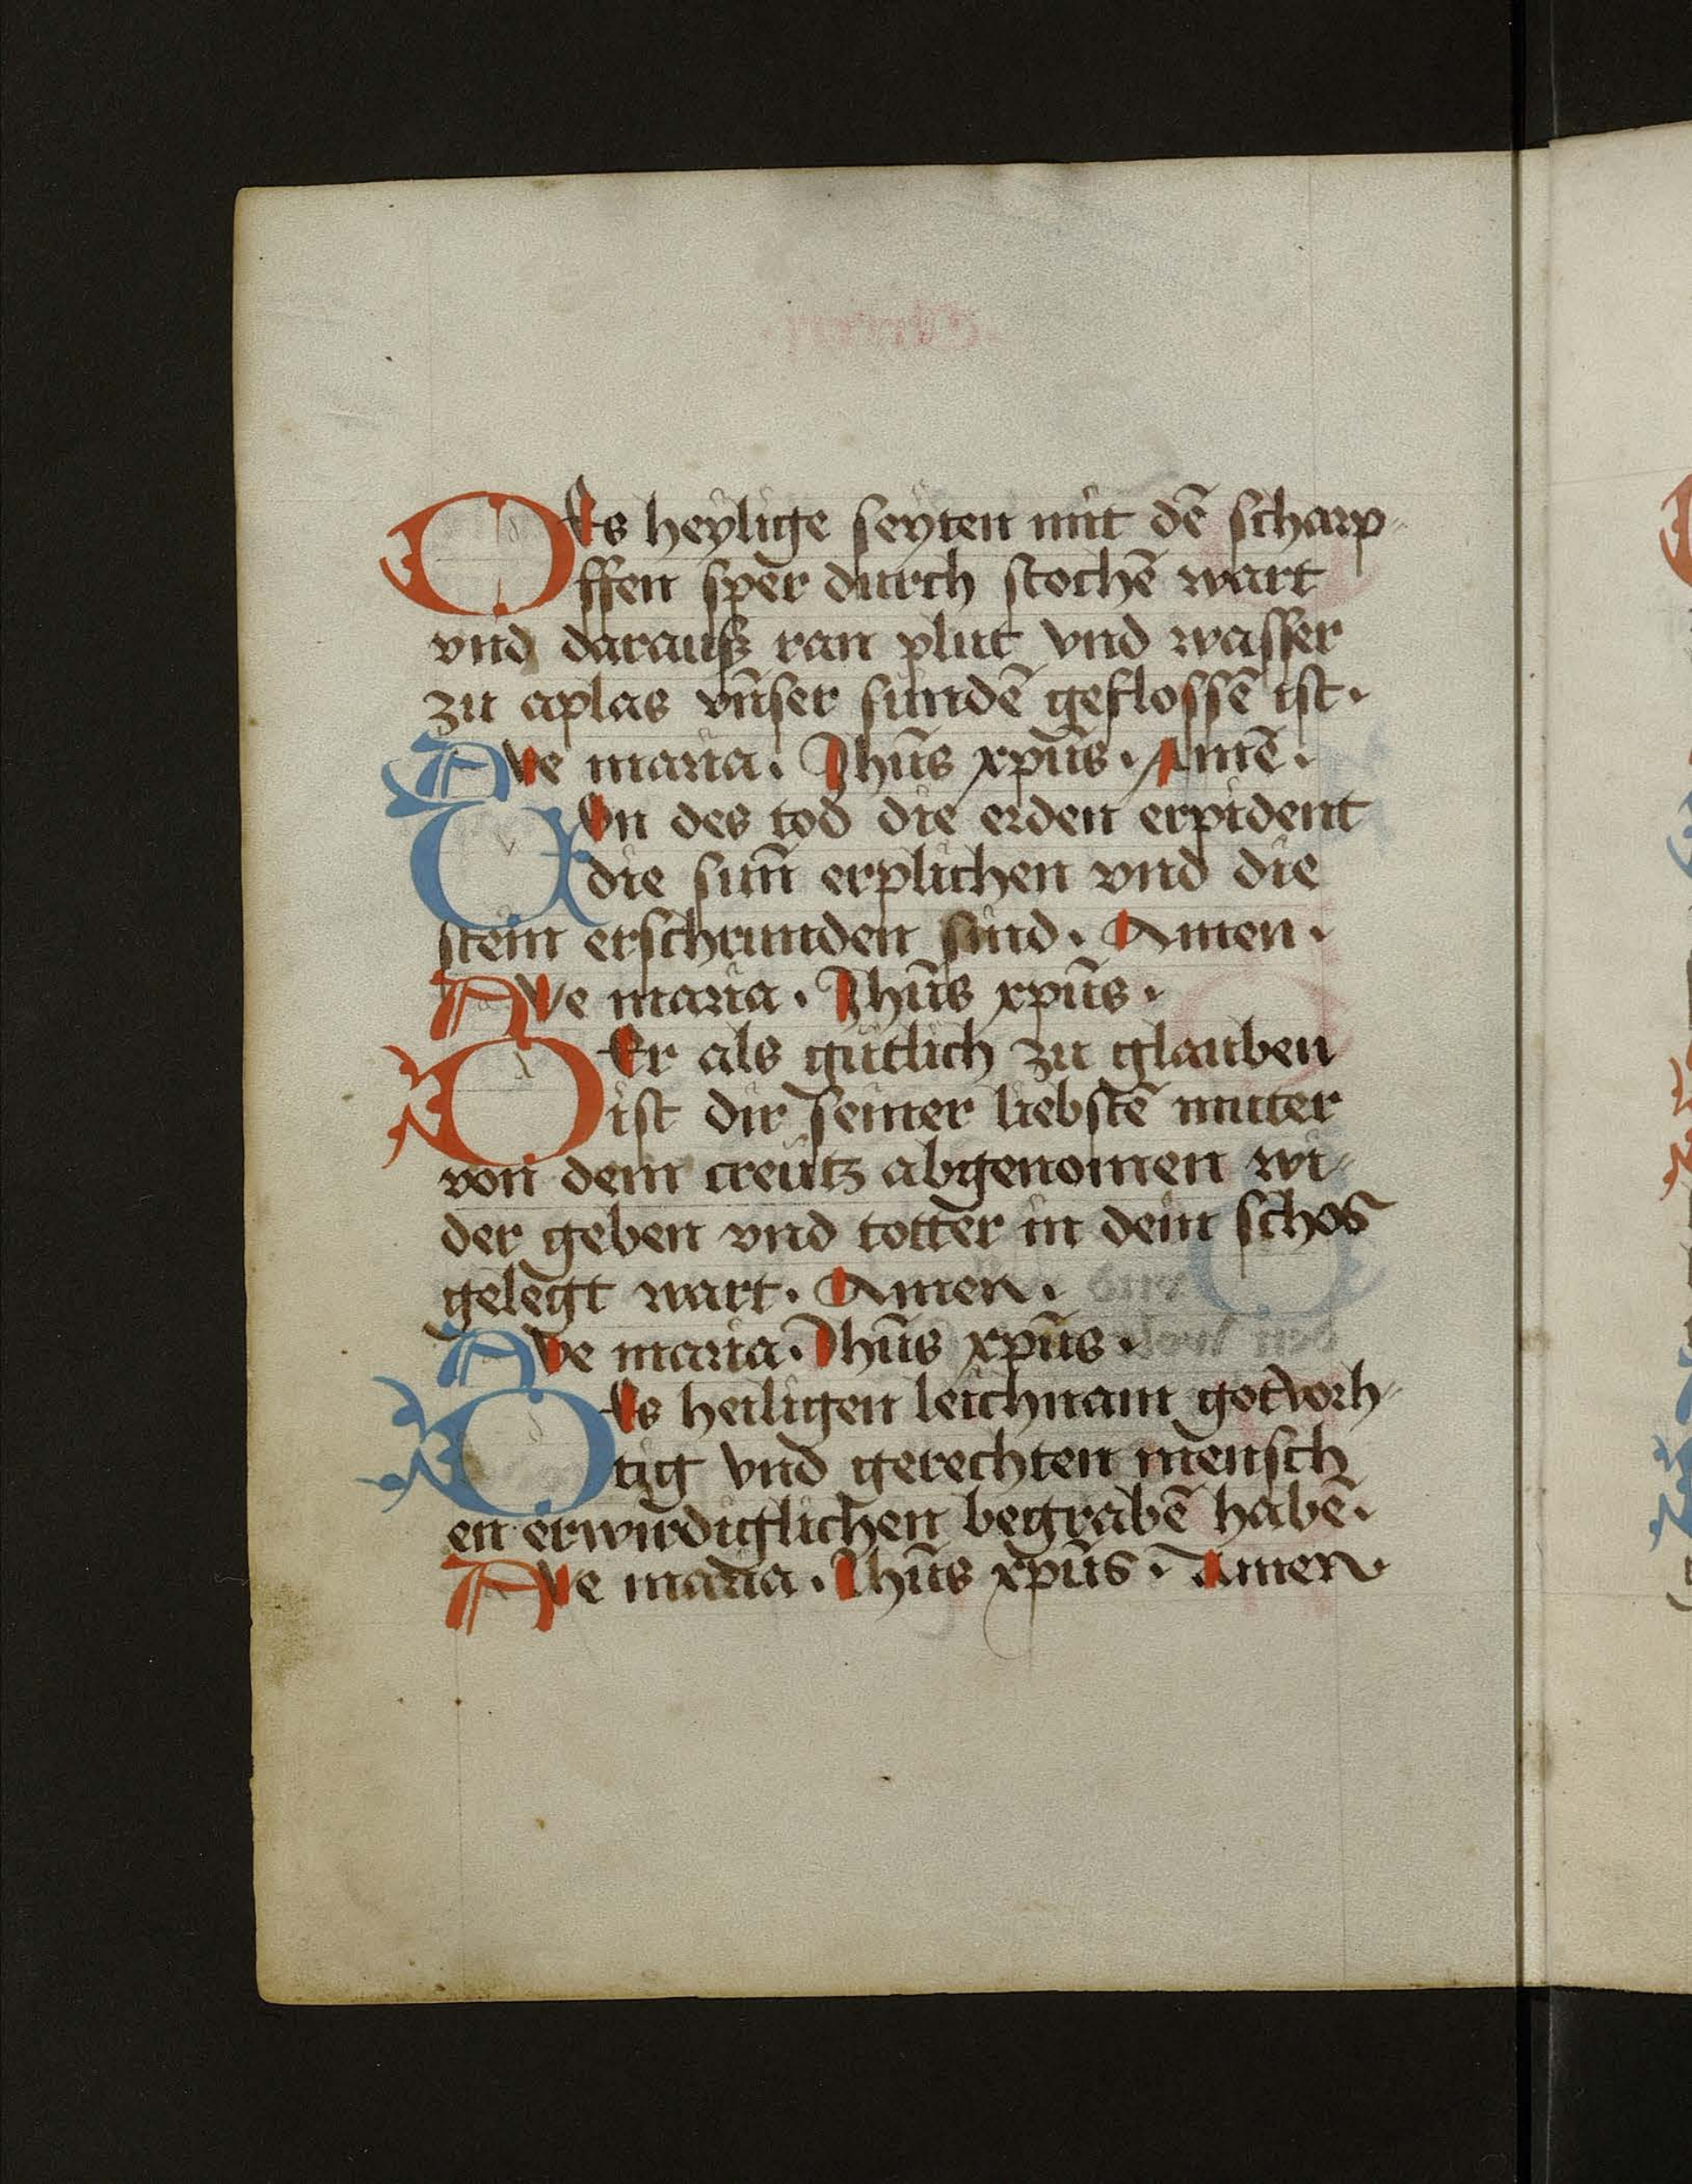 DEs heylige seyten mit dē scharp-
ffen sper durch stochē wart
vnd darauß ran plut vnd wasser
zu aplas vn̄ser sundē geflossē ist.
AVe maria. Jhūs xpūs. Amē.
VOn des tod die erden erpident
die sun̄ erplichen vnd die
stein erschrunden sind. Amen.
AVe maria. Jhūs xpūs.
DEr als gutlich zu glauben
ist dir seiner liebstē muter
von dem creutz abgenomen wi-
der geben vnd totter in dein schos
gelegt wart. Amen.
AVe maria. Jhūs xpūs.
DEs heiligen leichnam gotvorh-
tig vnd gerechten mensch
en erwirdiglichen begrabē habē.
AVe maria. Jhūs xpūs. Amen